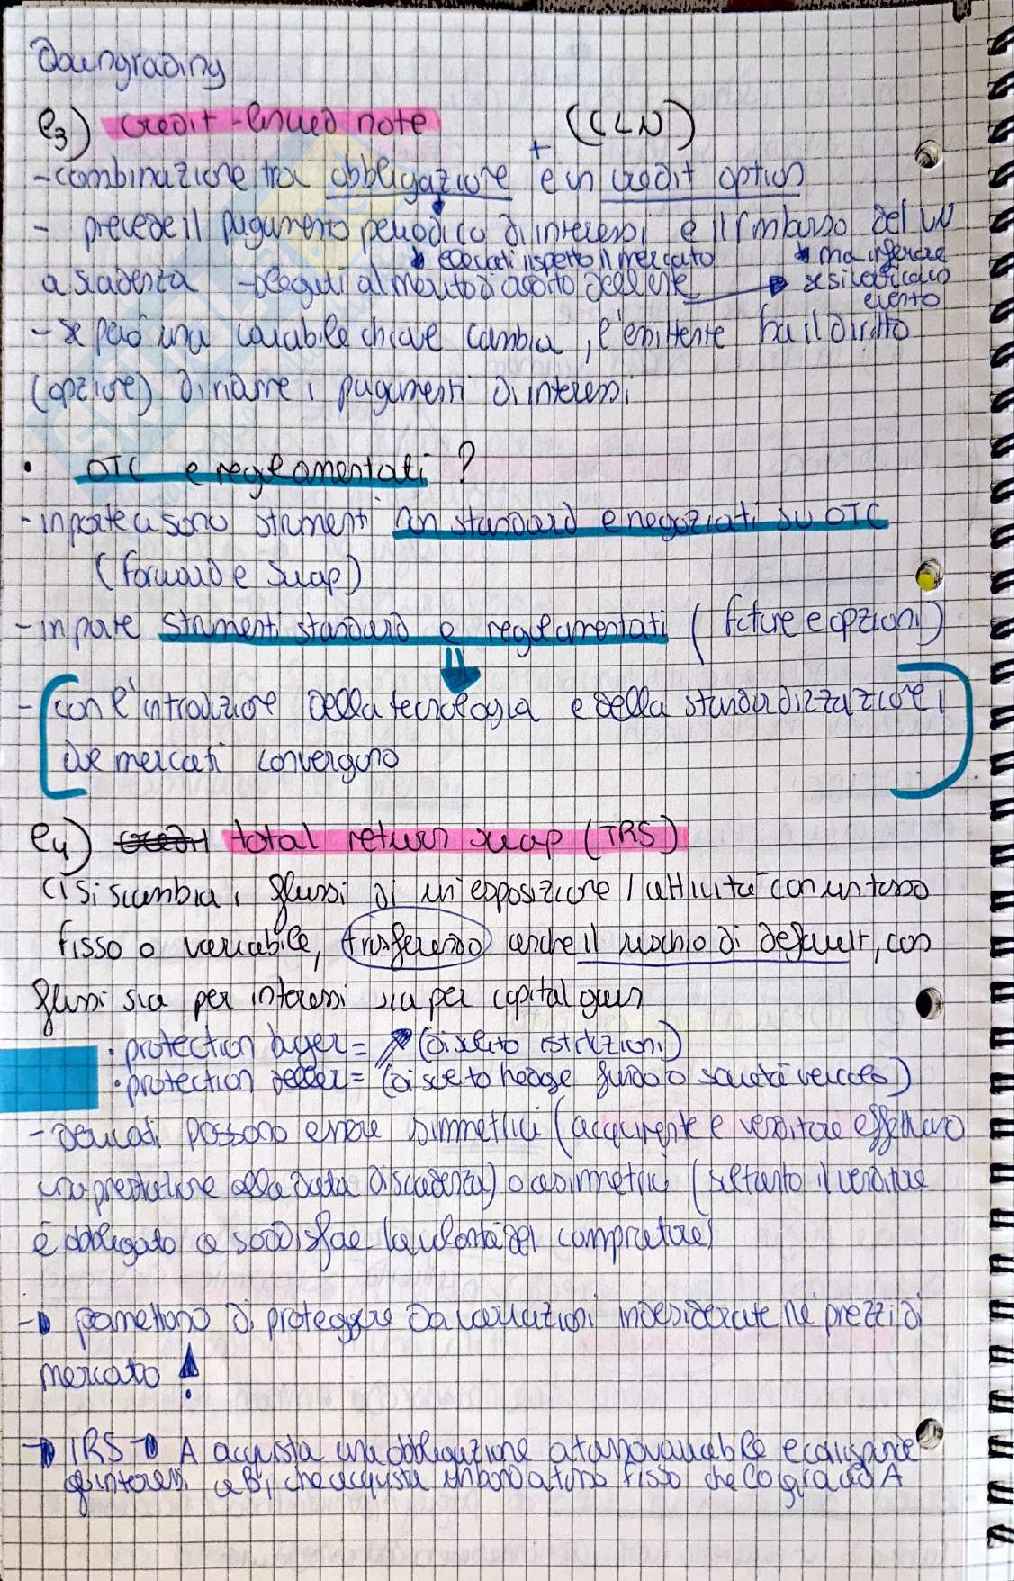 Downgrading
e3) credit-linked note (CLN)
+
- combinazione tra obbligazione e un credit option
- prevede il pagamento periodico di interessi e il rimborso del VN
elevati rispetto il mercato * ma inferiore
a scadenza - legati al merito di credito dell'ente → se si verifica un
evento
- se però una variabile chiave cambia, l'emittente ha il diritto
(opzione) di ridurre i pagamenti di interessi
• OTC e regolamentati?
- in parte ci sono strumenti non standard e negoziati su OTC
(forward e swap)
- in parte strumenti standard e regolamentati (future e opzioni)
- [con l'introduzione della tecnologia e della standardizzazione i
due mercati convergono]
e4) credit total return swap (TRS)
ci si scambia i flussi di un'esposizione / attività con un tasso
fisso o variabile, trasferendo anche il rischio di default, con
flussi sia per interessi sia per capital gain
• protection buyer = (di solito istituzioni)
• protection seller = (di solito hedge fund o società veicolo)
- derivati possono essere simmetrici (acquirente e venditore effettuano
una prestazione alla data di scadenza) o asimmetrici (soltanto il venditore
è obbligato a soddisfare la volontà del compratore)
→ permettono di proteggere da variazioni indesiderate nei prezzi di
mercato !
→ IRS → A acquista una obbligazione a tasso variabile e
gli interessi a B, che acquista un bond a tasso fisso che lo gira ad A